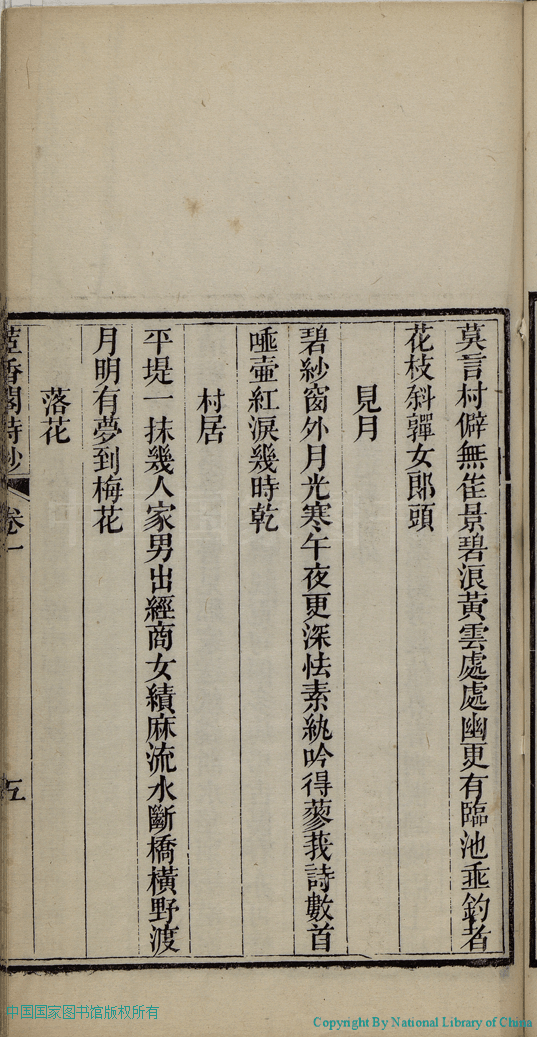 莫言村僻無隹景碧浪黃雲處處幽更有臨池垂釣者
花枝斜嚲女郎頭
見月
碧紗窗外月光寒午夜更深怯素紈吟得蓼莪詩數首
唾壺紅淚幾時乾
村居
平堤一抹幾人家男出經商女績麻流水斷橋橫野渡
月明有夢到梅花
落花
香閣詩鈔 卷一 五
中国国家图书馆版权所有
Copyright By National Library of China